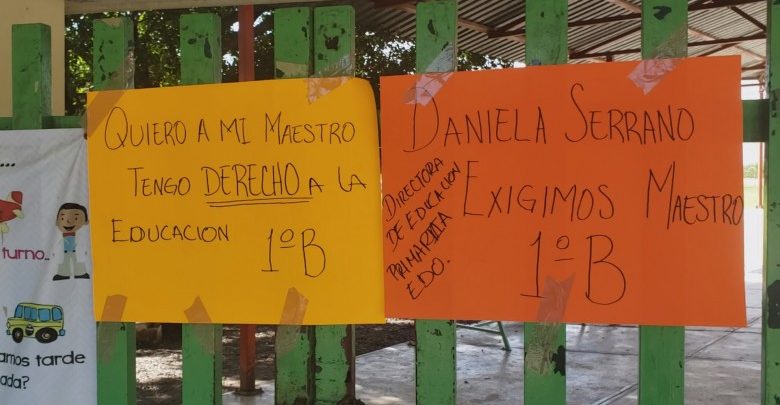 QUIERO A MI MAESTRO
TENGO DERECHO A LA
EDUCACION 1ºB
DANIELA SERRANO
DIRECTORA
DE EDUCACION
PRIMARIA
EDO.
EXIGIMOS MAESTRO
1ºB
...
turno..
amos tarde
ada?